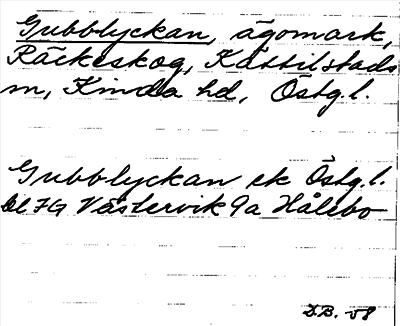 Gubblyckan, ägomark,
Räckeskog, Kättilstads
sn, Kinda hd, Östg.l.
Gubblyckan ek Östg.l.
bl 7G Västervik 9a Hålebo
D.B. 58